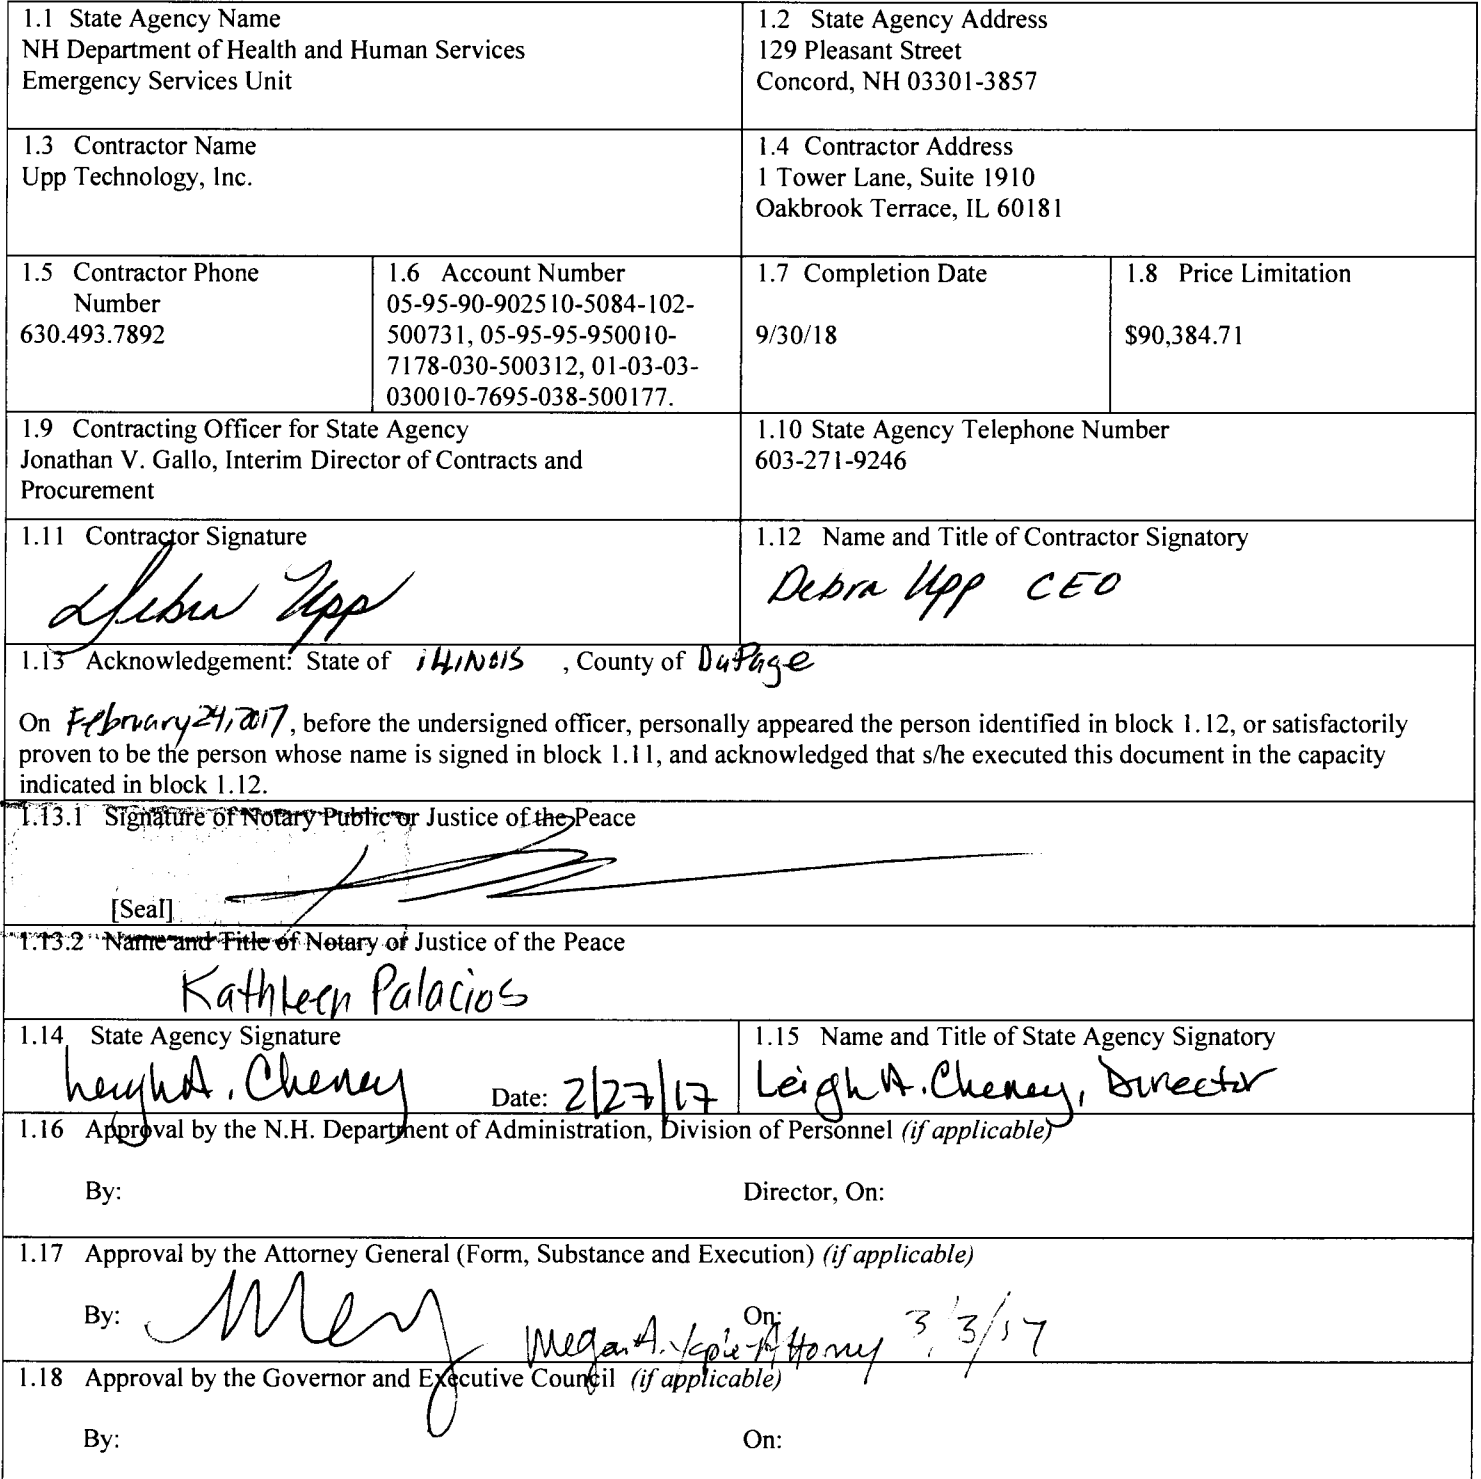 1.1 State Agency Name
NH Department of Health and Human Services
Emergency Services Unit
1.2 State Agency Address
129 Pleasant Street
Concord, NH 03301-3857
1.3 Contractor Name
Upp Technology, Inc.
1.4 Contractor Address
1 Tower Lane, Suite 1910
Oakbrook Terrace, IL 60181
1.5 Contractor Phone
Number
630.493.7892
1.6 Account Number
05-95-90-902510-5084-102-
500731, 05-95-95-950010-
7178-030-500312, 01-03-03-
030010-7695-038-500177.
1.7 Completion Date
9/30/18
1.8 Price Limitation
$90,384.71
1.9 Contracting Officer for State Agency
Jonathan V. Gallo, Interim Director of Contracts and
Procurement
1.10 State Agency Telephone Number
603-271-9246
1.11 Contractor Signature
Debra Upp
1.12 Name and Title of Contractor Signatory
Debra Upp CEO
1.13 Acknowledgement: State of illiNois , County of DuPage
On February 24, 2017, before the undersigned officer, personally appeared the person identified in block 1.12, or satisfactorily
proven to be the person whose name is signed in block 1.11, and acknowledged that s/he executed this document in the capacity
indicated in block 1.12.
1.13.1 Signature of Notary Public or Justice of the Peace
[Seal]
1.13.2 Name and Title of Notary or Justice of the Peace
Kathleen Palacios
1.14 State Agency Signature
Leigh A. Cheney Date: 2/27/17
1.15 Name and Title of State Agency Signatory
Leigh A. Cheney, Director
1.16 Approval by the N.H. Department of Administration, Division of Personnel (if applicable)
By: Director, On:
1.17 Approval by the Attorney General (Form, Substance and Execution) (if applicable)
By: On:
Megan A. Attorney 3/3/17
1.18 Approval by the Governor and Executive Council (if applicable)
By: On: